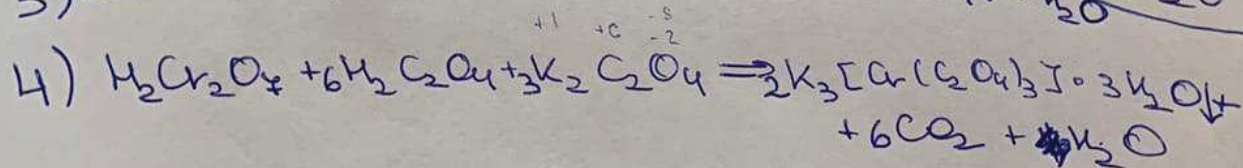 3)
20
+1 +C -8
-2
4) H₂Cr₂O₇ + 6H₂C₂O₄ + 3K₂C₂O₄ => 2K₃[Cr(C₂O₄)₃]∘3H₂O↓+
+ 6CO₂ + H₂O